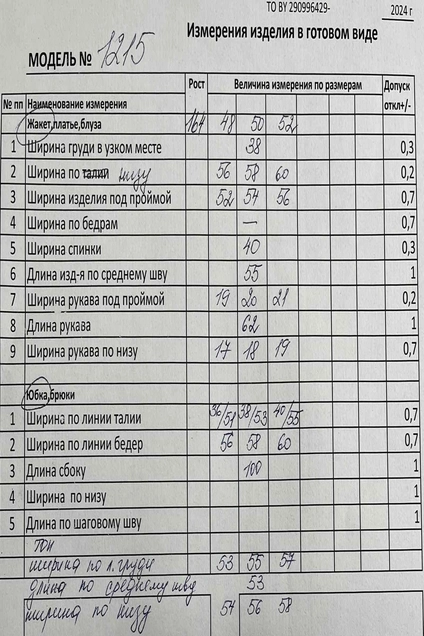 ТО BY 290996429-
2024 г
Измерения изделия в готовом виде
МОДЕЛЬ № 1215
Рост Величина измерения по размерам Допуск откл+/-
№ пп Наименование измерения
Жакет,платье,блуза 164 48 50 52
1 Ширина груди в узком месте 38 0,3
2 Ширина по талии низу 56 58 60 0,2
3 Ширина изделия под проймой 52 54 56 0,7
4 Ширина по бедрам — 0,7
5 Ширина спинки 40 0,3
6 Длина изд-я по среднему шву 55 1
7 Ширина рукава под проймой 19 20 21 0,2
8 Длина рукава 62 1
9 Ширина рукава по низу 17 18 19 0,7
Юбка,брюки
1 Ширина по линии талии 36/51 38/53 40/55 0,7
2 Ширина по линии бедер 56 58 60 0,7
3 Длина сбоку 100 1
4 Ширина по низу 1
5 Длина по шаговому шву 1
Топ
ширина по л. груди 53 55 57
длина по среднему шву 53
ширина по низу 54 56 58